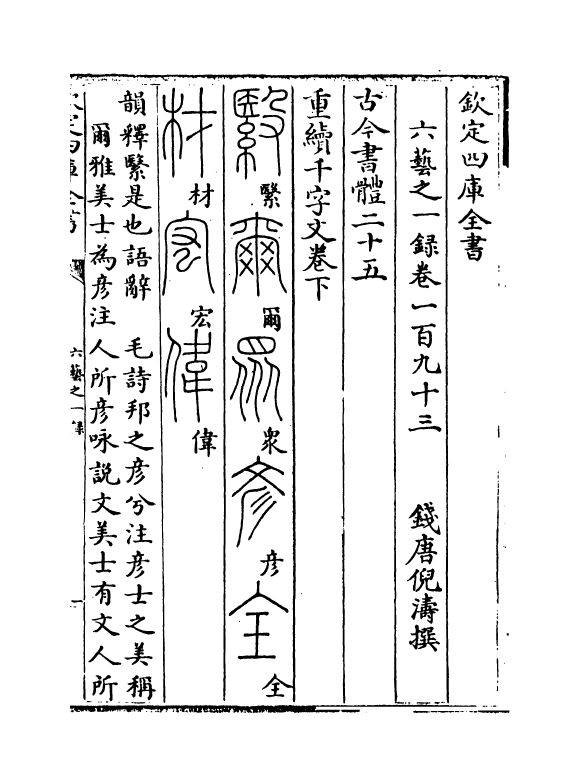 欽定四庫全書
六藝之一録卷一百九十三　錢唐倪濤撰
古今書體二十五
重續千字文卷下
緊緊爾爾眾衆彦彦全全
材材宏宏偉偉
韻釋緊是也語辭　毛詩邦之彦兮注彦士之美稱
爾雅美士為彦注人所彦咏説文美士有文人所
欽定四庫全書
六藝之一録